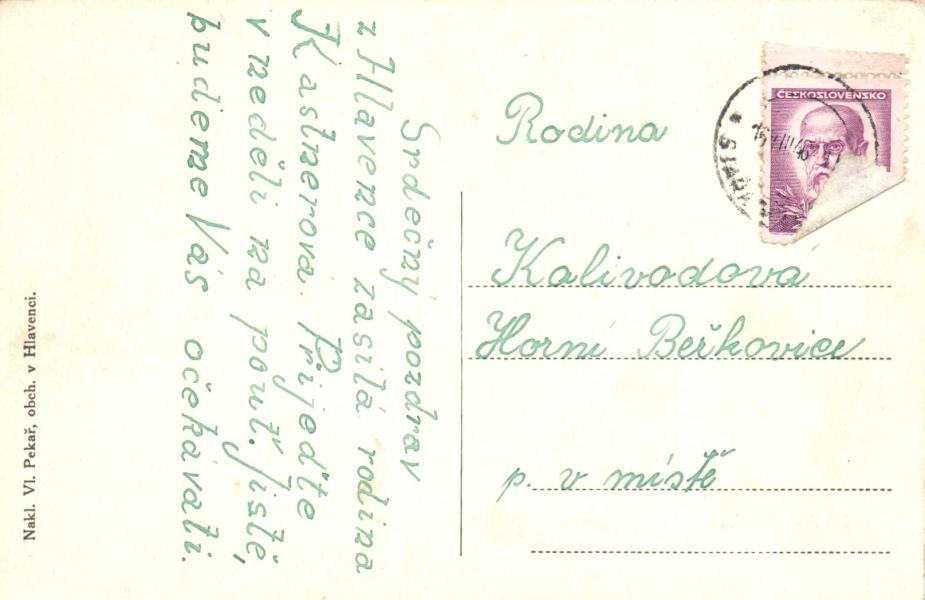 Srdečný pozdrav
z Hlavence zasílá rodina
Kastnerova. Přijeďte
v neděli na pouť. Jistě,
budeme Vás očekávati.
Rodina
Kalivodova
Horní Beřkovice
p. v místě
ČESKOSLOVENSKO
Nakl. Vl. Pekař, obch. v Hlavenci.